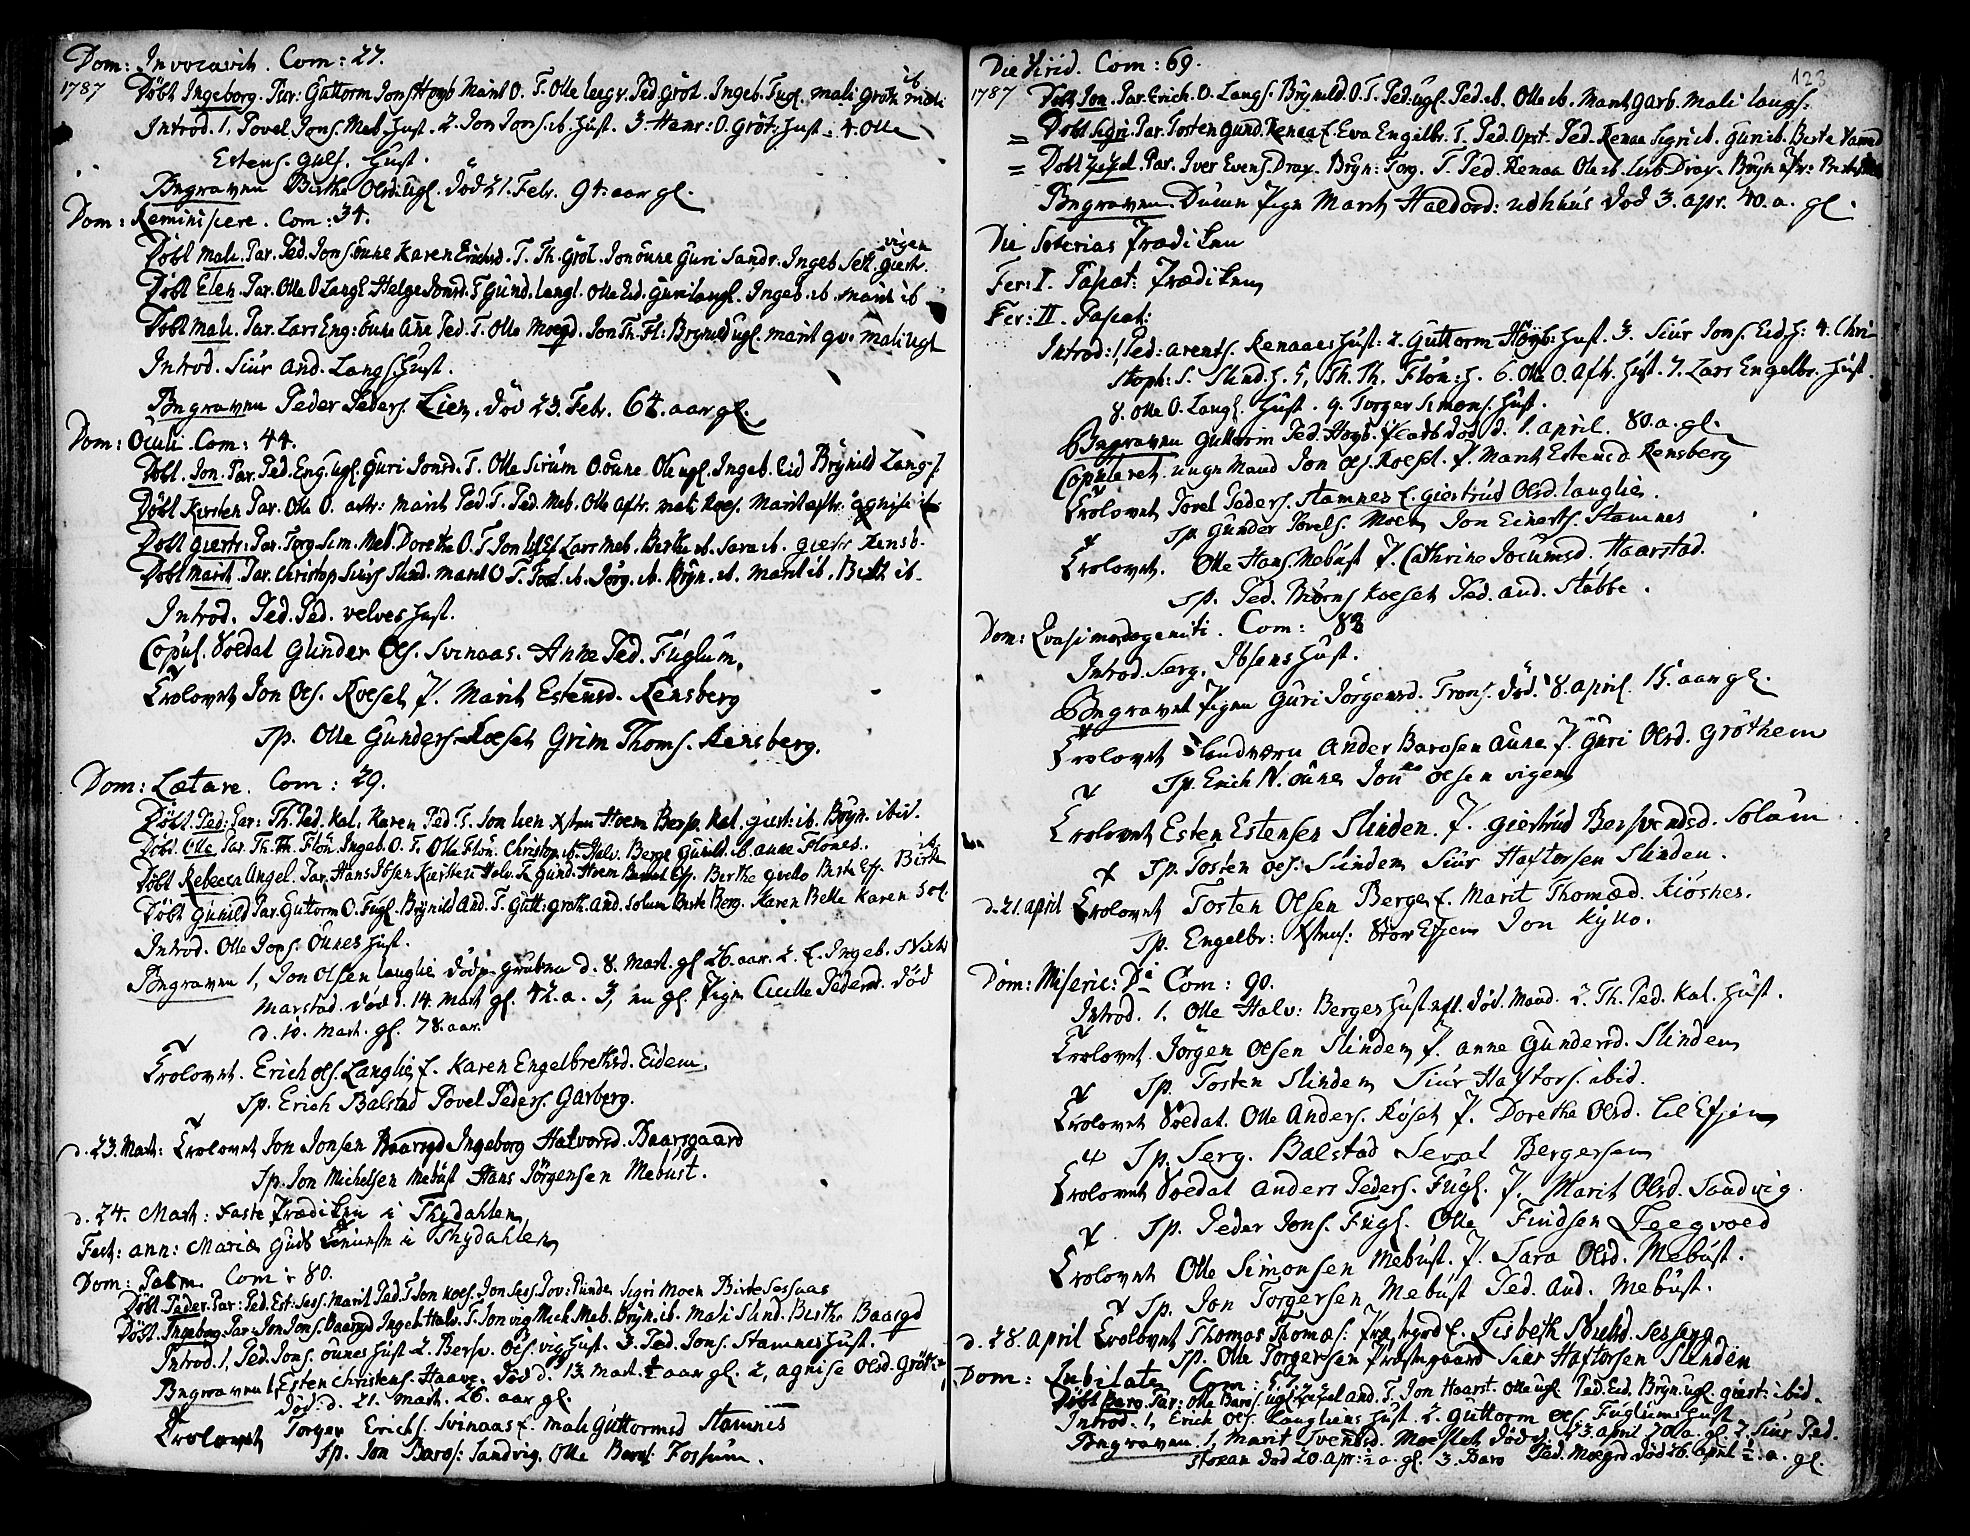 Dom: Invocavit. Com: 27.
1787 Døbt Ingeborg. Par: Guttorm Jons Høyb Marit O. T. Olle Ped Grot. Ingeb. Fugl. mali Groth mali ib
Introd. 1, Povel Jons. Meb. Hust. 2. Jon Jons. ib. Hust. 3. Hans: O. Grøt: Hust: 4. Olle
Estens. Gulf. Hust.
Begraven Birthe Olsd. Ugl. død 21. Febr. 94. aar gl.
Dom: Reminiscere. Com: 34.
Døbt Mali. Par. Ped. Jons. Øune Karen Erichsd. T. Th. Grøt. Jon Øune Guri Sandv. Ingeb Selt. giertr. vigen
Døbt Elen. Par. Olle O Langl Helge Jonsd. T Gund. Langl. Olle Eid. Guri Langl. Ingeb. ib. Marit ib
Døbt Mali. Par. Lars Eng: Øune Ane Ped. T. Olle Moegd. Jon Th. Fl. Brynild Ugl. marit qv. mali ugl
Introd. Siur And. Langs. Hust.
Begraven Peder Peders. Lien. død 23. Febr. 64. aar gl.
Dom: Oculi. Com: 44.
Døbt. Jon. Par. Ped. Eng. Ugl. Guri Jonsd. T. Olle Sirum O. Øune. Ole Ugl. Ingeb. Eid Brynild Langl
Døbt Kirsten Par. Olle O. aftr: marit Ped T. Ped. Meb. Olle aftr. mali Koes. Marit aftr. agnise ib
Døbt giertr: Par. Torg. Sim. Meb. Dorethe O. T Jon Lars Meb. Berthe ib. Sara ib. giertr Rensb.
Døbt Marit. Par. Christop. Siurs Slind. marit O T. ib. Jørg. ib. Bryn. ib. marit ib. Birth ib.
Introd. Ped. Ped. velves Hust.
Copul. Soldat Gunder Ols. Svinaas. Anne Ped. Fuglum.
Trolovet Jon Ols. Koeset P. Marit Estensd. Rensberg
Sp. Olle Gunders. Koeset Grim Thoms. Rensberg.
Dom: Lætare. Com: 29.
Døbt. Ped: Par: Th. Ped. Kal. Karen Ped. T. Jon Lien Hoem Besp. Kal. giert: ib. Bryn. ibid.
Døbt. Olle Par. Th. Th. Fløn Ingeb. O. T. Olle Fløn. Christop. ib. Halv. Berge Gunild ib. anne Flønes.
Døbt Rebecca Angel. Par. Hans Ibsen Kirsten Halv. T. Gund. Hoem Eff. Berthe qvello Berte Eff. Birth ib
Døbt Gunild Par. Guttorm O. Fugl. Brynild And. T. Gutt: groth. And. Solum Berte Berg. Karen Belle Karen Sol.
Introd. Olle Jons. Øunes Hust.
Begraven 1, Jon Olsen Langlie død d. 8. Mart. gl. 26. aar. 2. E. Ingeb.
Marstad død d. 14. Mart. gl. 42. a. 3, en gl. Pige Cicille Pedersd. død
d. 10. Mart. gl. 78. aar.
Trolovet. Erich Ols. Langlie E. Karen Engelbrethsd. Eidem.
Sp. Erich Balstad Povel Peders. Garberg.
d. 23. Mart: Trolovet Jon Jonsen Baarsgd Ingeborg Halvorsd. Baarsgaard
Sp. Jon Michelsen Mebust Hans Jørgensen Mebust.
d. 24. Mart: Faste Prædiken i Thydahlen
Fest: ann: Mariæ Guds i Thydahlen
Dom: Palm. Com: 80.
Døbt Peder. Par: Ped. Est: Sess. Marit Ped. T. Jon Koes. Jon Sess. Pov: Sigri Moen Birte Sesnaas
Døbt. Ingeborg. Par: Jon Jons. Baarsgd Ingeb. Halv. T. Jon vig Mich Meb. Bryn ib. Mali Slind. Berthe Baarsgd
Introd. 1, Ped. Jons. Øunes Hust 2. Bersv. Ols. vig Hust. 3. Ped. Jons. Stamnes Hust.
Begraven 1, Esten Christens. Haave. død d. 13. Mart. ½ aar gl. 2, agnise Olsd. Grøt:
død. d. 21. Mart. 26. aar gl.
Trolovet Torger Erichs. Svinaas E. mali Guttormsd Stamnes
Sp. Jon Baros: Sandvig. Olle Baros Fossum.
123
Die Virid. Com: 69.
1787 Døbt Jon. Par. Erich. O. Langs. Brynild. O. T. Ped: Ugl. Ped. ib. Olle ib. Marit garb. Mali Langs:
= Døbt Sigri. Par. Tosten Gund. Renaa E. Eva Engelbr. T. Ped. Opst. Ped. Renaa Sigri ib. Guri ib. Berte
= Døbt Zezel. Par. Iver Evens. Drax. Bryn: Torg. T. Ped. Renaa Ole ib. Lisb. Drax. Bryn
Begraven. Pige Marit Haldord: udhuus død 3. apr. 40. a. gl.
Die Soterias Prædiken
Fer: I. Pascat: Prædiken
Fer: II. Pascat:
Introd: 1, Ped: arents. Renaaes Hust: 2. Guttorm Høyb: Hust. 3. Siur Jons. Eid. H: 4. Chri-
stoph: S. Slind. H. 5, Th. Th. Fløn: H. 6. Olle O. Aftr. Hust. 7. Lars Engelbr. Hust.
8. Olle O. Langl. Hust. 9. Torger Simons. Hust.
Begraven Guttorm Ped. Høyb. død d. 1. april. 80. a. gl.
Copuleret. unge Mand Jon Ols. Koeset. P. Marit Estensd Rensberg
Trolovet Povel Peders. Stamnes E. Giertrud Olsd. Langlie.
Sp. Gunder Povels. Moen Jon Einerts. Stamnes
Trolovet. Olle Hans. Mebust P. Cathrine Jocumsd. Haarstad.
Sp. Ped. Koeset Ped. And. Stabbe.
Dom: Qvasimodogeniti. Com: 83
Introd. Serg. Ibsens Hust.
Begravet Pigen Guri Jørgensd. død. 8. april. 15. aar gl.
Trolovet Ander Barosen Aune P. Guri Olsd. Grøthem
Sp. Erich N. Øune Jon Olsen vigen
Trolovet Esten Estensen Slinden. P. Giertrud Bersvendsd. Solum
Sp. Tosten Ols. Slinden Siur Haftorsen Slinden.
d. 21. april Trolovet Tosten Olsen Berge E. Marit Thomæd. Kiøsnes.
Sp. Engelbr: Stor Efjem Jon Kyllo.
Dom: Miseric: Di Com: 90.
Introd. 1. Olle Halv: Berges Hust. eft. død. Mand. 2. Th. Ped. Kal. Hust.
Trolovet. Jørgen Olsen Slinden P. Anne Gundersd. Slinden
Sp. Tosten Slinden Siur Haftors. ibid.
Trolovet Soldat. Olle Anders. Køset P. Dorethe Olsd. Lil Efjem
Sp. Serg. Balstad Sevat Bergersen
Trolovet Soldat Anders Peders. Fugl. P. Marit Olsd. Sandvig.
Sp. Peder Jons. Fugl. Olle Findsen Leegvold
Trolovet Olle Simonsen Mebust. P. Sara Olsd. Mebust.
Sp. Jon Torgersen Mebust Ped. And. Mebust.
d. 28. April Trolovet Thomas Thomas: E. Lisbeth Sesseng
Sp. Olle Torgersen Præstegaard Siur Haftorsen Slinden
Dom: Jubilate Com: 57.
Døbt Baro. Par: Olle Baros. Ugl. Zezel And. T. Jon Haarst. Olle Ugl Ped. Eid. Bryn. Ugl. giert: ibid.
Introd. 1, Erich Ols. Langliens Hust. 2. Guttorm Ols. Fuglums Hust
Begraven 1, Marit Svendsd. Moeslet død d. 23. april 70. a. gl. 2. Siur Ped.
Storaa død 20. apr: ½ a. gl. 3. Baro Ped. Moegrd. død 26. april ½. a. gl.